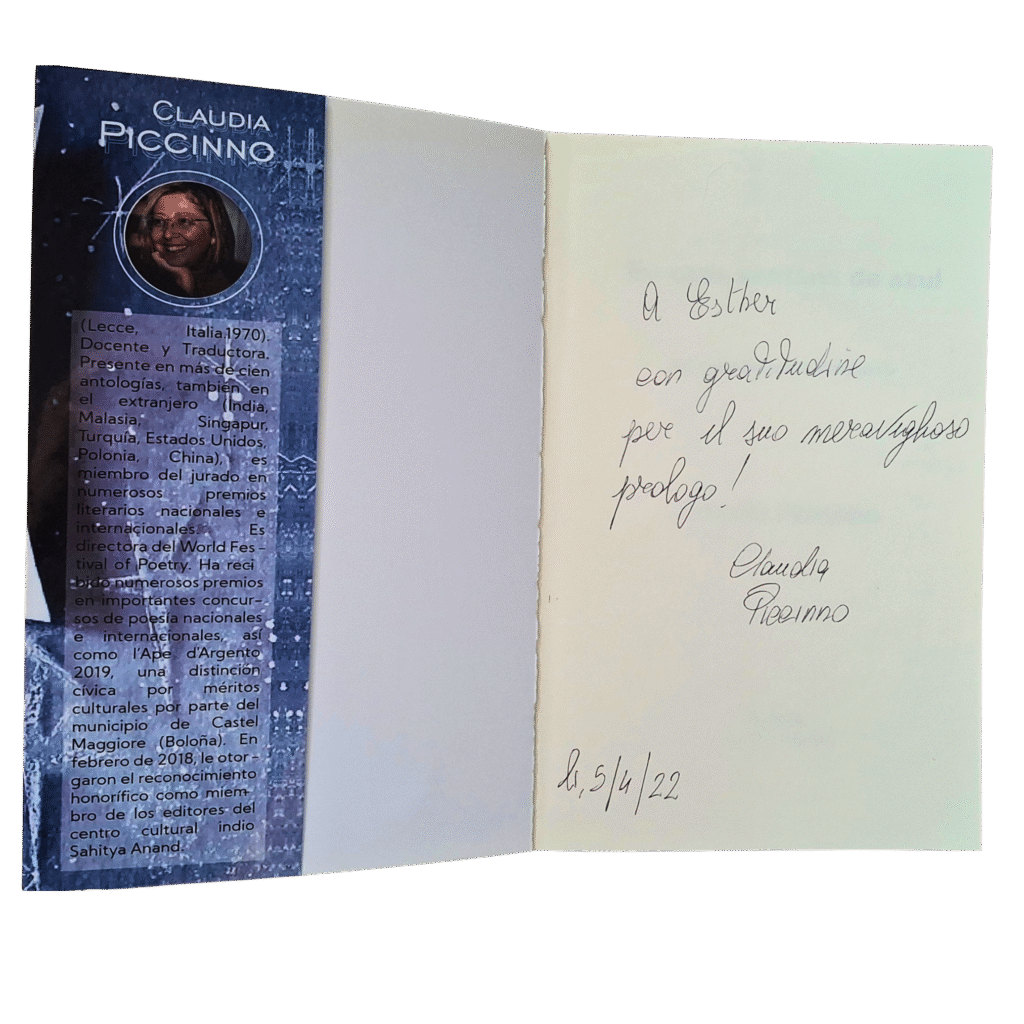 CLAUDIA
PICCINNO
(Lecce, Italia.1970).
Docente y Traductora.
Presente en más de cien
antologías, también en
el extranjero (India,
Malasia, Singapur,
Turquía, Estados Unidos,
Polonia, China), es
miembro del jurado en
numerosos premios
literarios nacionales e
internacionales. Es
directora del World Fes-
tival of Poetry. Ha reci
bido numerosos premios
en importantes concur-
sos de poesía nacionales
e internacionales, así
como l'Ape d'Argento
2019, una distinción
cívica por méritos
culturales por parte del
municipio de Castel
Maggiore (Boloña). En
febrero de 2018, le otor-
garon el reconocimiento
honorífico como miem-
bro de los editores del
centro cultural indio
Sahitya Anand.
A Esther
con gratitudine
per il suo meraviglioso
prologo!
Claudia
Piccinno
lì, 5/4/22
de azul